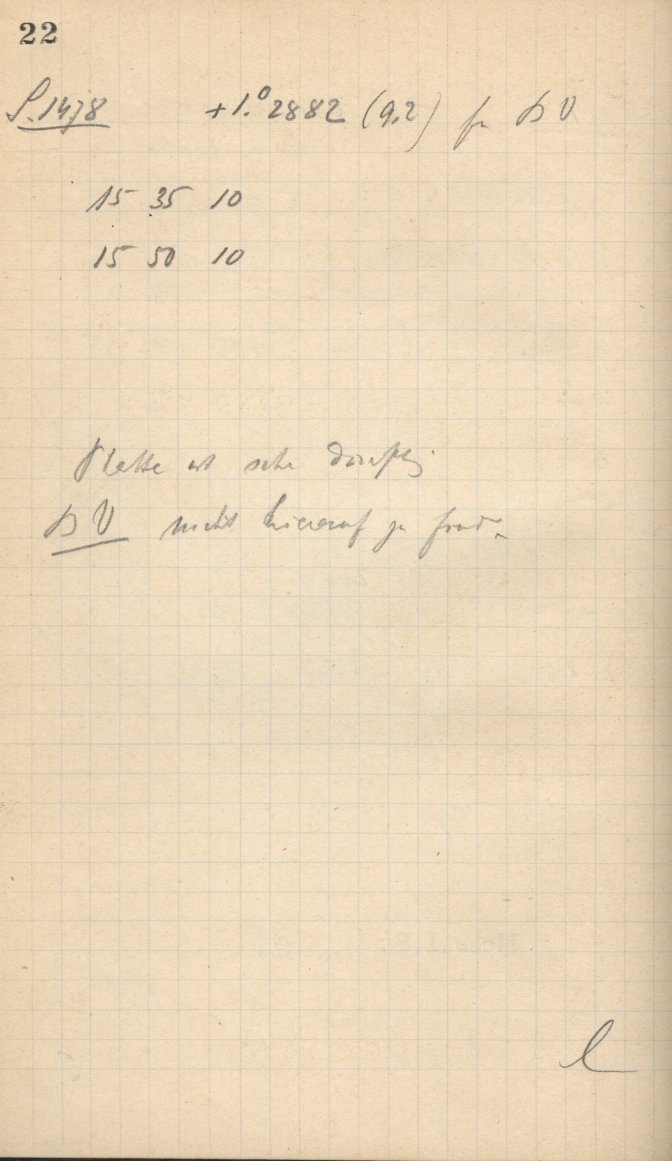 22
S. 1478 +1.°2882 (9,2) fr BV
15 35 10
15 50 10
Platte ist sehr dürftig.
BV nicht hierauf zu find.
l